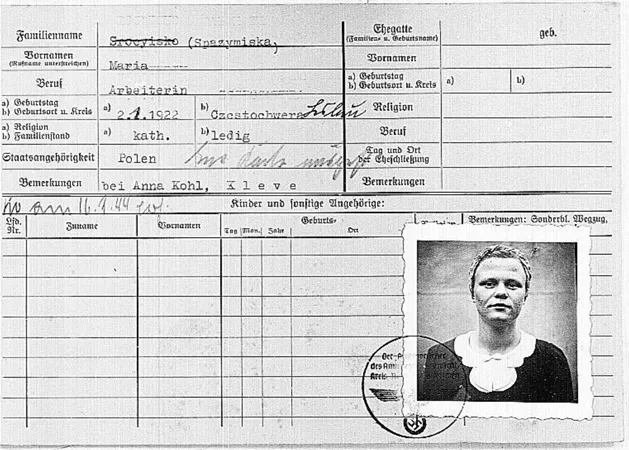 Familienname Srocyisko (Spazymiska, Ehegatte (Familien- u. Geburtsname) geb.
Vornamen (Rufname unterstreichen) Maria Vornamen
Beruf Arbeiterin a) Geburtstag b) Geburtsort u. Kreis a) b)
a) Geburtstag b) Geburtsort u. Kreis a) 2.1.1922 b) Czestochwera Religion
a) Religion b) Familienstand a) kath. b) ledig Beruf
Staatsangehörigkeit Polen Tag und Ort der Eheschließung
Bemerkungen bei Anna Kohl, Kleve Bemerkungen
am 16. 44
Kinder und sonstige Angehörige:
Lfd. Nr. Zuname Vornamen Geburts- Tag Mon. Jahr Ort Bemerkungen: Sonderbl. Wegzug,
Der
des
Kreis